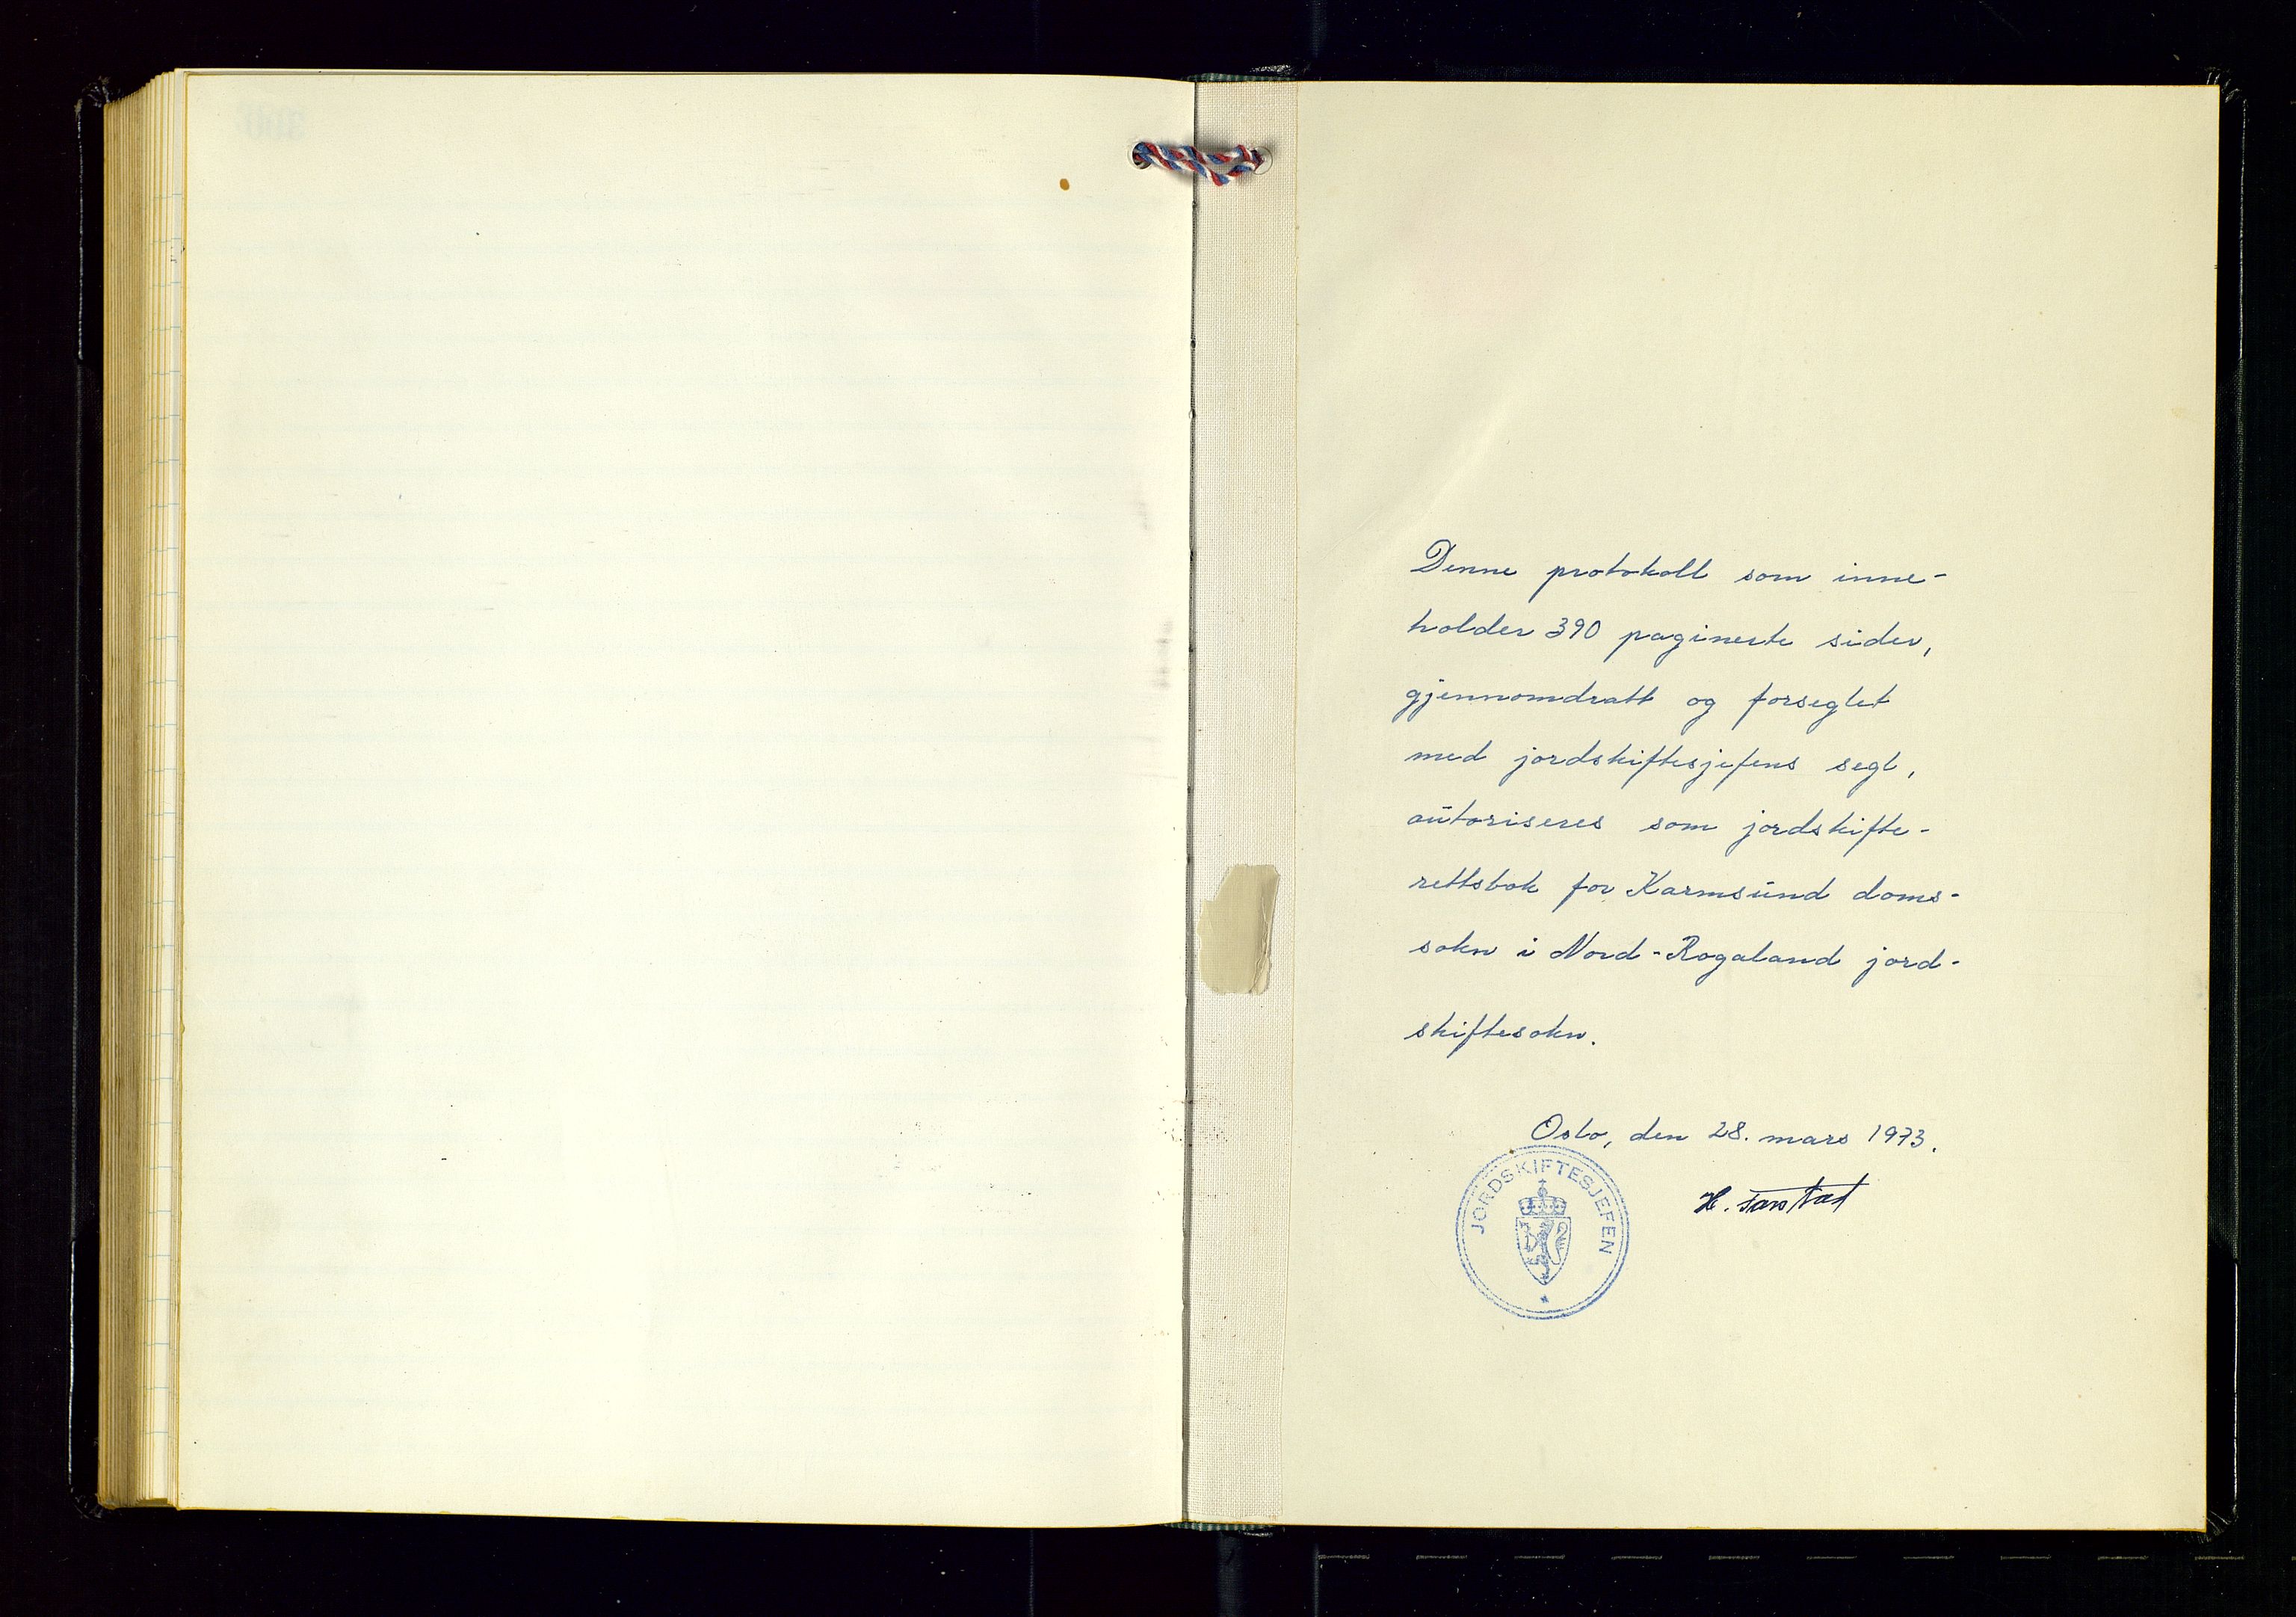 Denne protokoll som inne-
holder 390 paginerte sider,
gjennomdratt og forseglet
med jordskiftesjefens segl,
autoriseres som jordskifte-
rettsbok for Karmsund doms-
sokn i Nord-Rogaland jord-
skiftesokn.
Oslo, den 28. mars 1973.
JORDSKIFTESJEFEN
H.